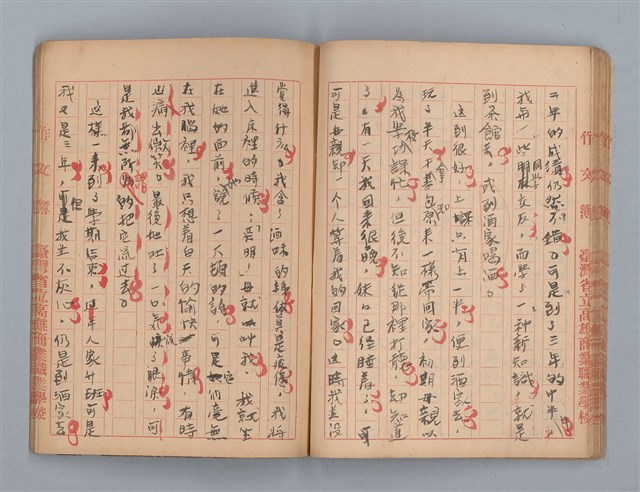 作文簿 臺灣省立高雄商業職業學校
二年的成績仍然不錯。可是到了三年的中半
我與一些同學朋友交友，而學了一種新知識，就是
到茶館去，或到酒家喝酒。
這到很好，上課只有上一半，便到酒家去，
玩了半天，才拿起書包原來一樣帶回家，初期母親以
為我學校功課忙，但後不知從那裡打聽，却知道
了。有一天我回來很晚，妹妹已經睡着了，可
可是母親却一個人等着我的回家。這時我並沒
覺得什麼。我含了酒味的身體真是疲倦，我將
進入床裡的時候，吳明！母就叫我，我就坐
在她的面前，她說了一大頓的話，可是這個們毫無
在我腦裡，我只想着白天的愉快事情，有時
也露出微笑。最後她吐了一口氣流了眼淚，可
是我都無所謂的把它流過去。
這樣一來到了學期結束，但是人家升班可是
我又是三年，可是我並不灰心，仍是到酒家去
作文簿 臺灣省立高雄商業職業學校